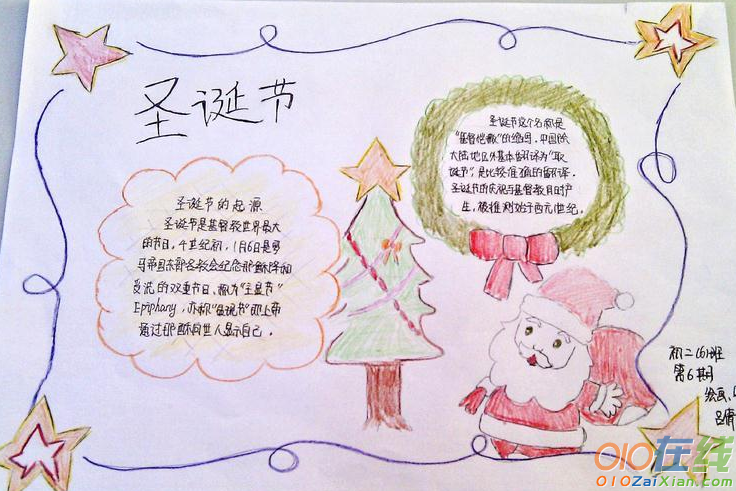 圣诞节
圣诞节的起源
圣诞节是基督教世界最大
的节日,4世纪初,1月6日是罗
马帝国东部各教会纪念耶稣降和
受洗的双重节日、称为"主显节"
Epiphany,亦称"显现节"即上帝
通过耶稣向世人显示自己。
圣诞节这个名称是
"基督弥撒"的缩写,中国除
大陆地区外基本翻译为"耶
诞节",是比较准确的翻译。
圣诞节的庆祝与基督教同时产
生,被推测始于西元1世纪。
初二(6)班
第6期
绘画、
010在线
010ZaiXian.com